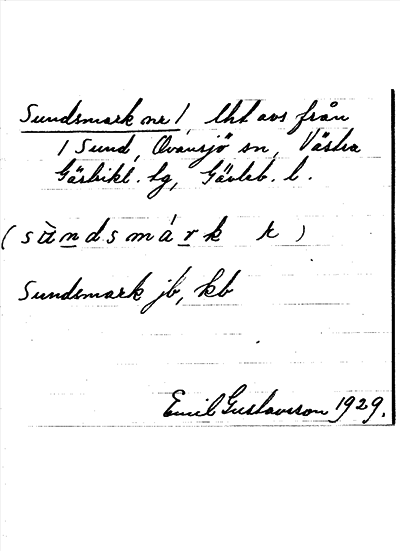 Sundsmark nr 1, lht avs från
1 Sund, Ovansjö sn, Västra
Gästrikl. tg, Gävleb. l.
(sùndsmárk r)
Sundsmark jb, kb
Emil Gustavsson 1929.